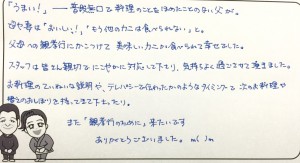 「うまい!」――普段無口で料理のことなどほめたことのない父が。
母も妻は「おいしい!」「もう他のカニは食べられない」と。
父母への親孝行にかこつけて美味しいカニが食べられて幸せでした。
スタッフは皆さん親切でにこやかに対応して下さり、気持ちよく過ごさせて頂きました。
お料理のていねいな説明や、テレパシーで伝わったかのようなタイミングで次のお料理や
おしぼりを持ってきて下さったり。
また「親孝行のために」来たいです
ありがとうございました。m( )m